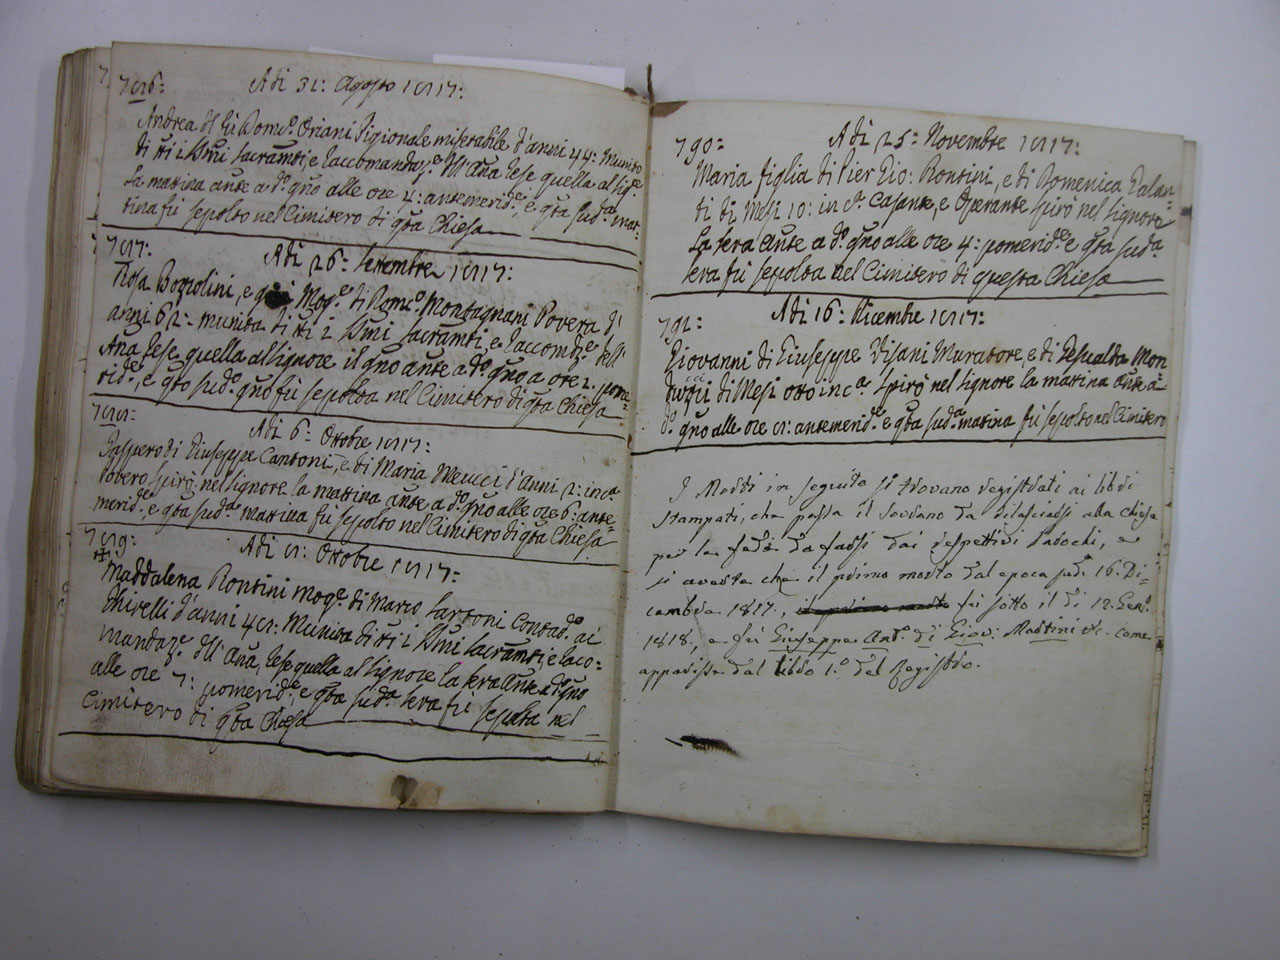 786:
Adi 31: Agosto 1817:
Andrea del fù Dom:co Oriani Pigionale miserabile d'anni 44: Munito
di tti i SSmi Sacramti, e raccomandaz:e dell'Aña rese quella al Sig:e
la matina ante a d:o gño alle ore 4: antemerid:e, e qta sud:a mat:
tina fù sepolto nel Cimitero di qta Chiesa
787:
Adi 26: Settembre 1817:
Rosa Bozzolini, e già Mog:e di Dom:co Montagnani Povera d'
anni 62: munita di tti i SSmi Sacramti, e raccomdz:e dell'
Aña rese quella al Signore il gño ante a d:o gño a ore 2: pome
rid:e, e qto sud:o gño fù sepolta nel Cimitero di qta Chiesa
788:
Adi 6: Ottobre 1817:
Gaspero di Giuseppe Cantoni, e di Maria Meucci d'Anni 2: in ca
Povero spirò nel Signore la mattina ante a d:o gño alle ore 6: ante
merid:e, e qta sud:a matina fù sepolto nel Cimitero di qta Chiesa
789:
Adi 8: Ottobre 1817:
Maddalena Rontini mog:e di Marco Sartoni Contad:o ai
Ghirelli d'anni 48: Munita di tti i SSmi Sacramti, e raco:
mandaz:e dell'Aña, rese quella al Signore la sera ante a d:o gño
alle ore 7: pomerid:e, e qta sud:a sera fù sepolta nel
Cimitero di qta Chiesa
790:
Adi 25: Novembre 1817:
Maria figlia di Pier Gio: Rontini, e di Domenica Galan
ti di Mesi 10: in c:a Casante, e Operante spirò nel Signore
la sera ante a d:o gño alle ore 4: pomerid:e e qta sud:a
sera fù sepolta nel Cimitero di questa Chiesa
791:
Adi 16: Dicembre 1817:
Giovanni di Giuseppe Visani Muratore e di Gesualda Mon
duzzi di Mesi otto in c:a spirò nel Signore la matina ante a
d:o gño alle ore 8: antemerid:e e qta sud:a matina fù sepolto nel Cimitero
I Morti in seguito si trovano registrati ai libri
stampati, che passa il Sovrano da rilasciarsi alla Chiesa
per le fedi da farsi dai respettivi Parochi, e
si averta che il primo morto dal epoca sud:a 16. Di-
cembre 1817., il primo morto fù sotto il di 12. Gen:o
1818, e fù Giuseppe Ant:o di Giov: Martini &c. come
apparisce dal libro 1:o del Registro.